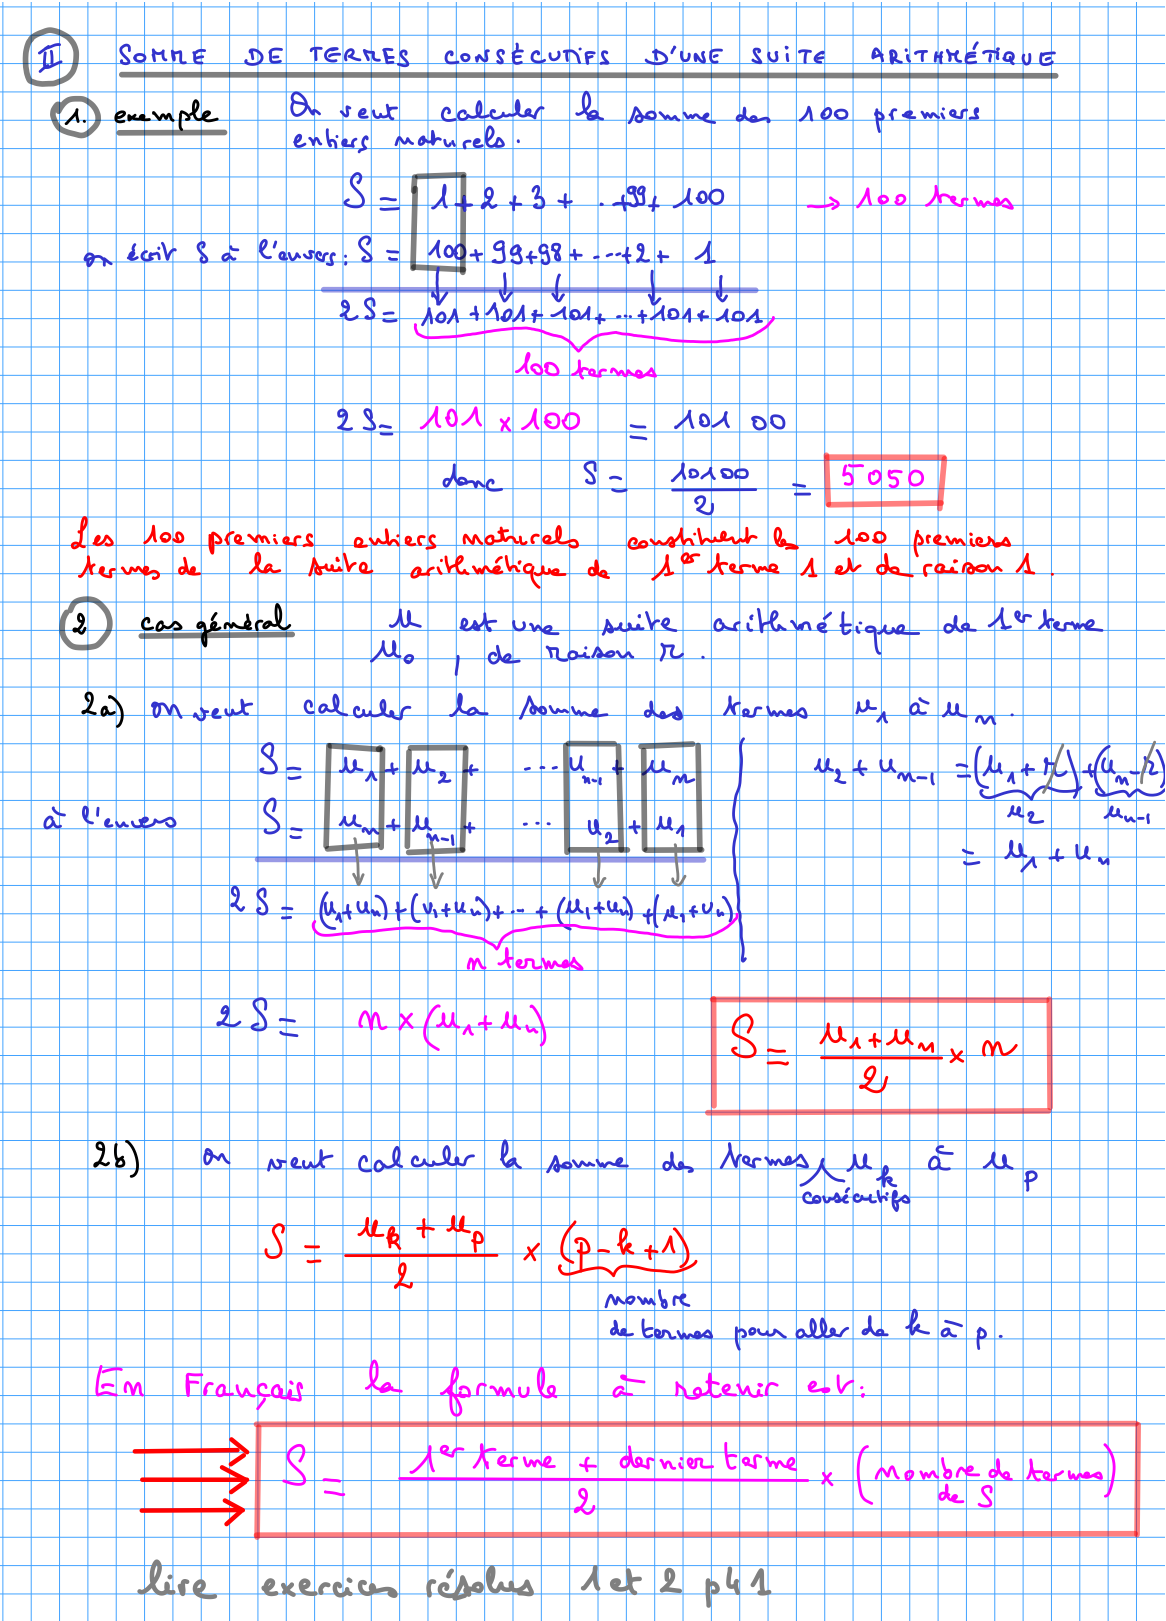 II SOMME DE TERMES CONSÉCUTIFS D'UNE SUITE ARITHMÉTIQUE
1. exemple On veut calculer la somme des 100 premiers
entiers naturels.
S = 1 + 2 + 3 + ... + 99 + 100 → 100 termes
on écrit S à l'envers : S = 100 + 99 + 98 + ... + 2 + 1
2S = 101 + 101 + 101 + ... + 101 + 101
100 termes
2S = 101 × 100 = 101 00
donc S = 10100/2 = 5050
Les 100 premiers entiers naturels constituent les 100 premiers
termes de la suite arithmétique de 1er terme 1 et de raison 1.
2 cas général u est une suite arithmétique de 1er terme
u₀, de raison r.
2a) on veut calculer la somme des termes u₁ à uₙ.
S = u₁ + u₂ + ... uₙ₋₁ + uₙ
à l'envers S = uₙ + uₙ₋₁ + ... u₂ + u₁
2S = (u₁+uₙ) + (u₁+uₙ) + ... + (u₁+uₙ) + (u₁+uₙ)
n termes
u₂ + uₙ₋₁ = (u₁ + r) + (uₙ - r)
u₂ uₙ₋₁
= u₁ + uₙ
2S = n × (u₁ + uₙ)
S = (u₁ + uₙ)/2 × n
2b) on veut calculer la somme des termes consécutifs u_k à u_p
S = (u_k + u_p)/2 × (p - k + 1)
nombre
de termes pour aller de k à p.
En Français la formule à retenir est :
S = (1er terme + dernier terme)/2 × (nombre de termes de S)
lire exercices résolus 1 et 2 p41